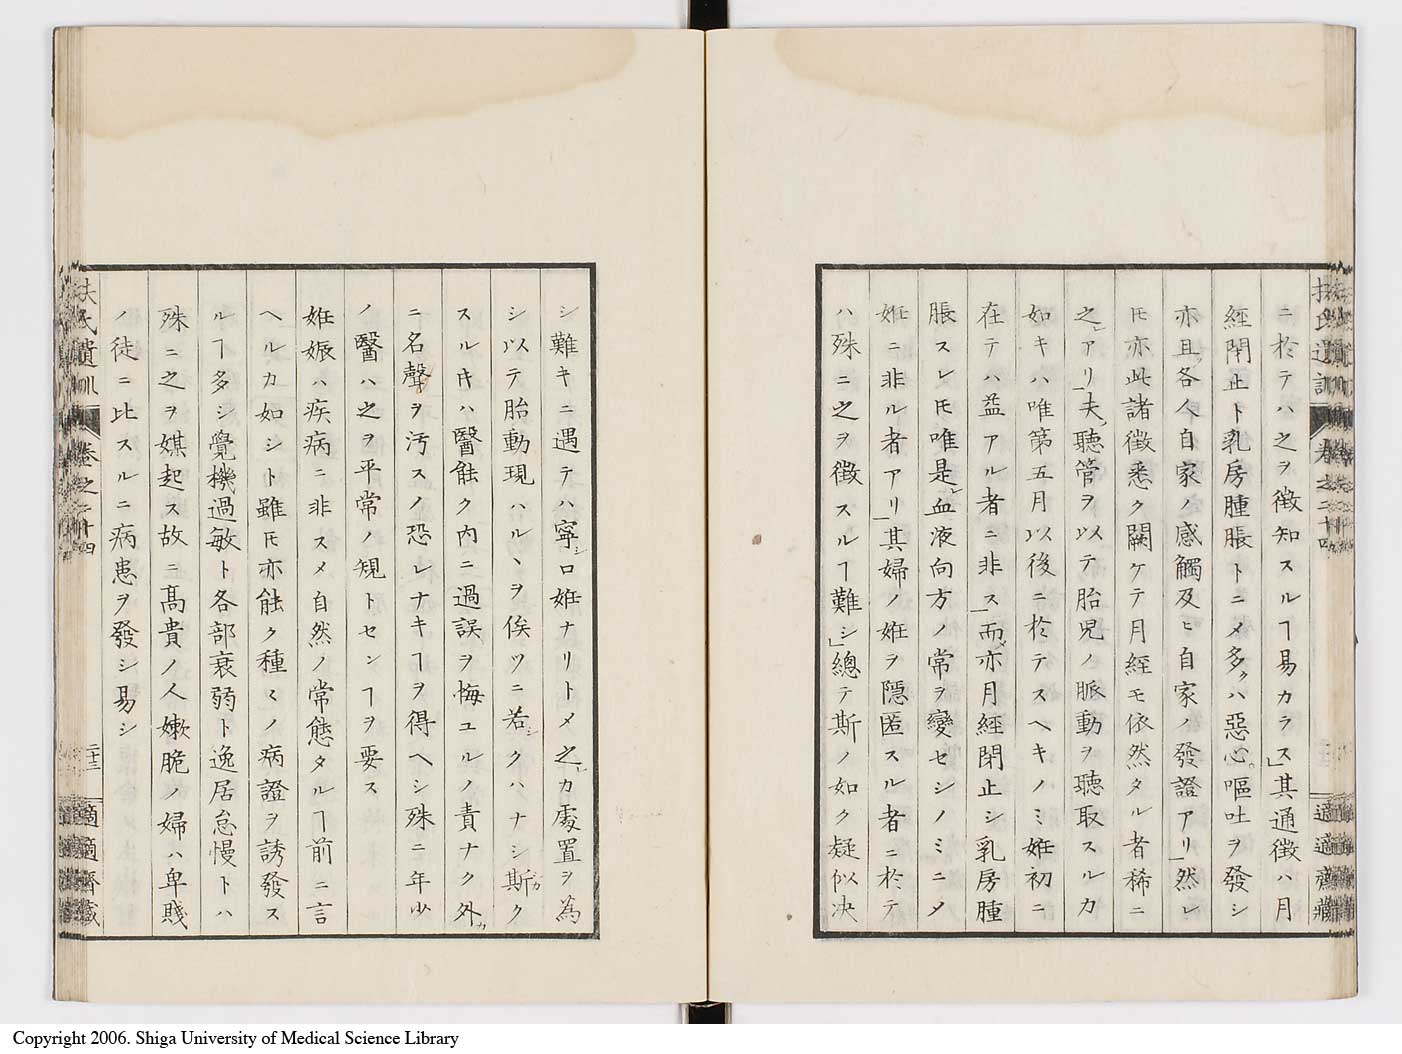 ニ於テハ之ヲ徴知スルヿ易カラス」其通徴ハ月
經閉止ト乳房腫脹トニメ多クハ惡心。嘔吐ヲ發シ
亦且各人自家ノ感觸及ヒ自家ノ發證アリ」然レ
𪜈亦此諸徴悉ク闕ケテ月經モ依然タル者稀ニ
之アリ」夫聽管ヲ以テ胎児ノ脈動ヲ聽取スルカ
如キハ唯第五月以後ニ於テスヘキノミ姙初ニ
在テハ益アル者ニ非ス」而亦月經閉止シ乳房腫
脹スレ𪜈唯是血液向方ノ常ヲ變セシノミニメ
姙ニ非ル者アリ」其婦ノ姙ヲ隱匿スル者ニ於テ
ハ殊ニ之ヲ徴スルヿ難シ」總テ斯ノ如ク疑似决
シ難キニ遇テハ寧ロ姙ナリトメ之カ處置ヲ為
シ以テ胎動現ハルヽヲ俟ツニ若クハナシ斯ク
スルキハ醫能ク内ニ過誤ヲ悔ユルノ責ナク外
ニ名聲ヲ汚スノ恐レナキヿヲ得ヘシ殊ニ年少
ノ醫ハ之ヲ平常ノ規トセンヿヲ要ス
姙娠ハ疾病ニ非スメ自然ノ常態タルヿ前ニ言
ヘルカ如シト雖𪜈亦能ク種々ノ病證ヲ誘發ス
ルヿ多シ覺機過敏ト各部衰弱ト逸居怠慢トハ
殊ニ之ヲ媒起ス故ニ髙貴ノ人嫩脆ノ婦ハ卑賤
ノ徒ニ比スルニ病患ヲ發シ易シ
扶氏遺訓
卷之二十四
二十三
適適齋藏
Copyright 2006. Shiga University of Medical Science Library